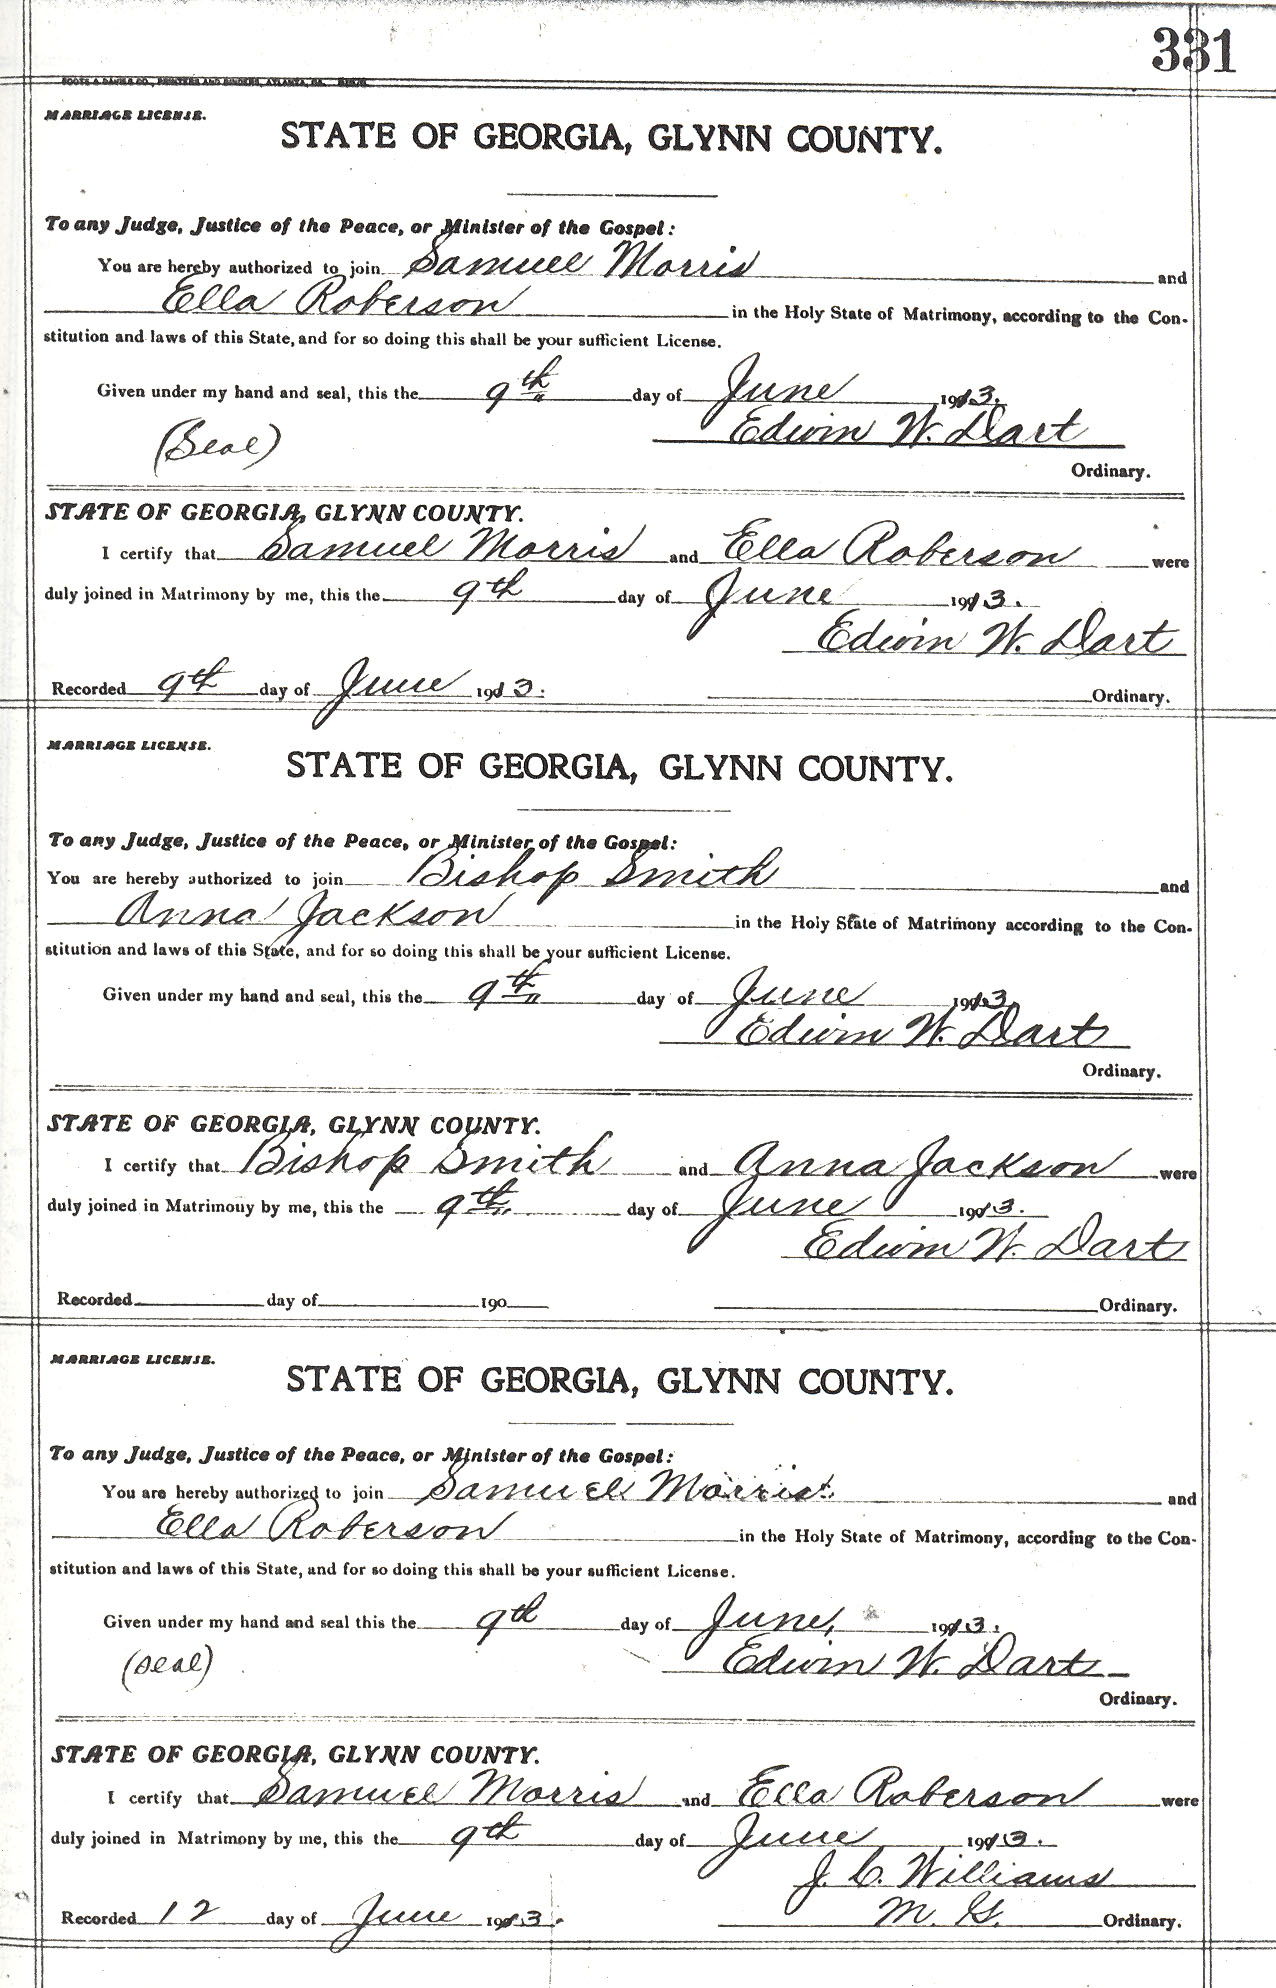 331
FOOTE & DAVIES CO., PRINTERS AND BINDERS, ATLANTA, GA.
MARRIAGE LICENSE.
STATE OF GEORGIA, GLYNN COUNTY.
To any Judge, Justice of the Peace, or Minister of the Gospel:
You are hereby authorized to join Samuel Morris and
Ella Roberson in the Holy State of Matrimony, according to the Con-
stitution and laws of this State, and for so doing this shall be your sufficient License.
Given under my hand and seal, this the 9th day of June 1913.
(Seal) Edwin W. Dart
Ordinary.
STATE OF GEORGIA, GLYNN COUNTY.
I certify that Samuel Morris and Ella Roberson were
duly joined in Matrimony by me, this the 9th day of June 1913.
Edwin W. Dart
Recorded 9th day of June 1913. Ordinary.
MARRIAGE LICENSE.
STATE OF GEORGIA, GLYNN COUNTY.
To any Judge, Justice of the Peace, or Minister of the Gospel:
You are hereby authorized to join Bishop Smith and
Anna Jackson in the Holy State of Matrimony according to the Con-
stitution and laws of this State, and for so doing this shall be your sufficient License.
Given under my hand and seal, this the 9th day of June 1913.
Edwin W. Dart
Ordinary.
STATE OF GEORGIA, GLYNN COUNTY.
I certify that Bishop Smith and Anna Jackson were
duly joined in Matrimony by me, this the 9th day of June 1913.
Edwin W. Dart
Recorded day of 190 Ordinary.
MARRIAGE LICENSE.
STATE OF GEORGIA, GLYNN COUNTY.
To any Judge, Justice of the Peace, or Minister of the Gospel:
You are hereby authorized to join Samuel Morris and
Ella Roberson in the Holy State of Matrimony, according to the Con-
stitution and laws of this State, and for so doing this shall be your sufficient License.
Given under my hand and seal this the 9th day of June, 1913.
(seal) Edwin W. Dart
Ordinary.
STATE OF GEORGIA, GLYNN COUNTY.
I certify that Samuel Morris and Ella Roberson were
duly joined in Matrimony by me, this the 9th day of June 1913.
J. C. Williams
Recorded 12 day of June 1913. M. G. Ordinary.